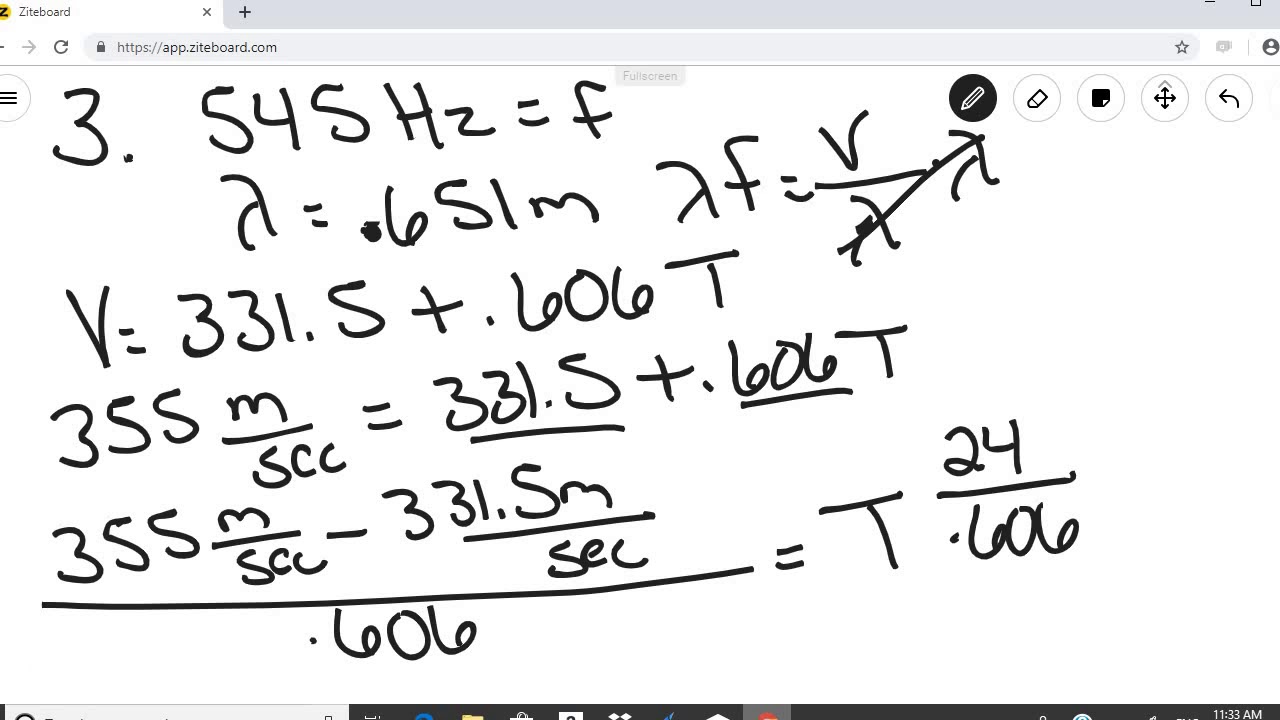 Ziteboard
https://app.ziteboard.com
Fullscreen
3. 545 Hz = f
λ = .651m λf = V/λ · λ
V = 331.5 + .606T
355 m/sec = 331.5 + .606T
355 m/sec - 331.5m/sec
.606
= T
24/.606
11:33 AM